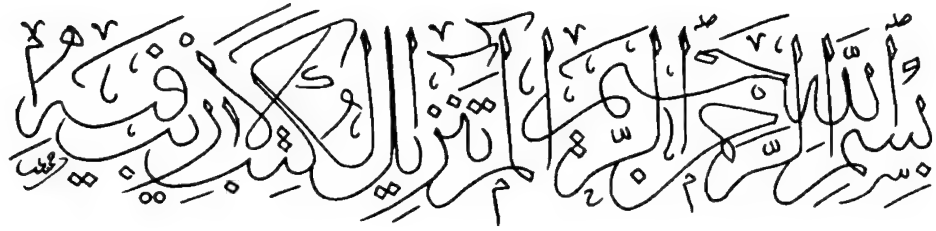 بسم الله الرحمن الرحيم الم تنزيل الكتب لا ريب فيه